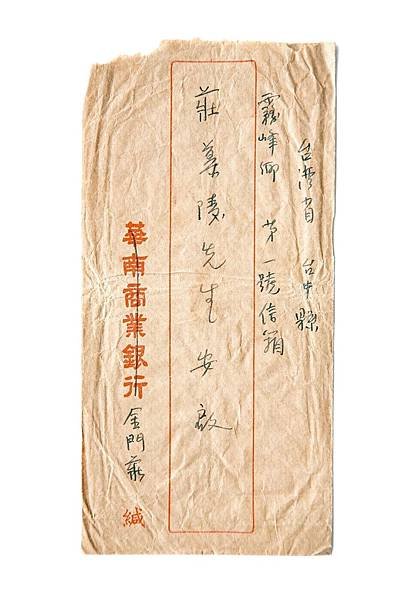 台灣省 台中縣
霧峰鄉 第一號信箱
莊慕陵先生安啟
華南商業銀行 金門莊 緘